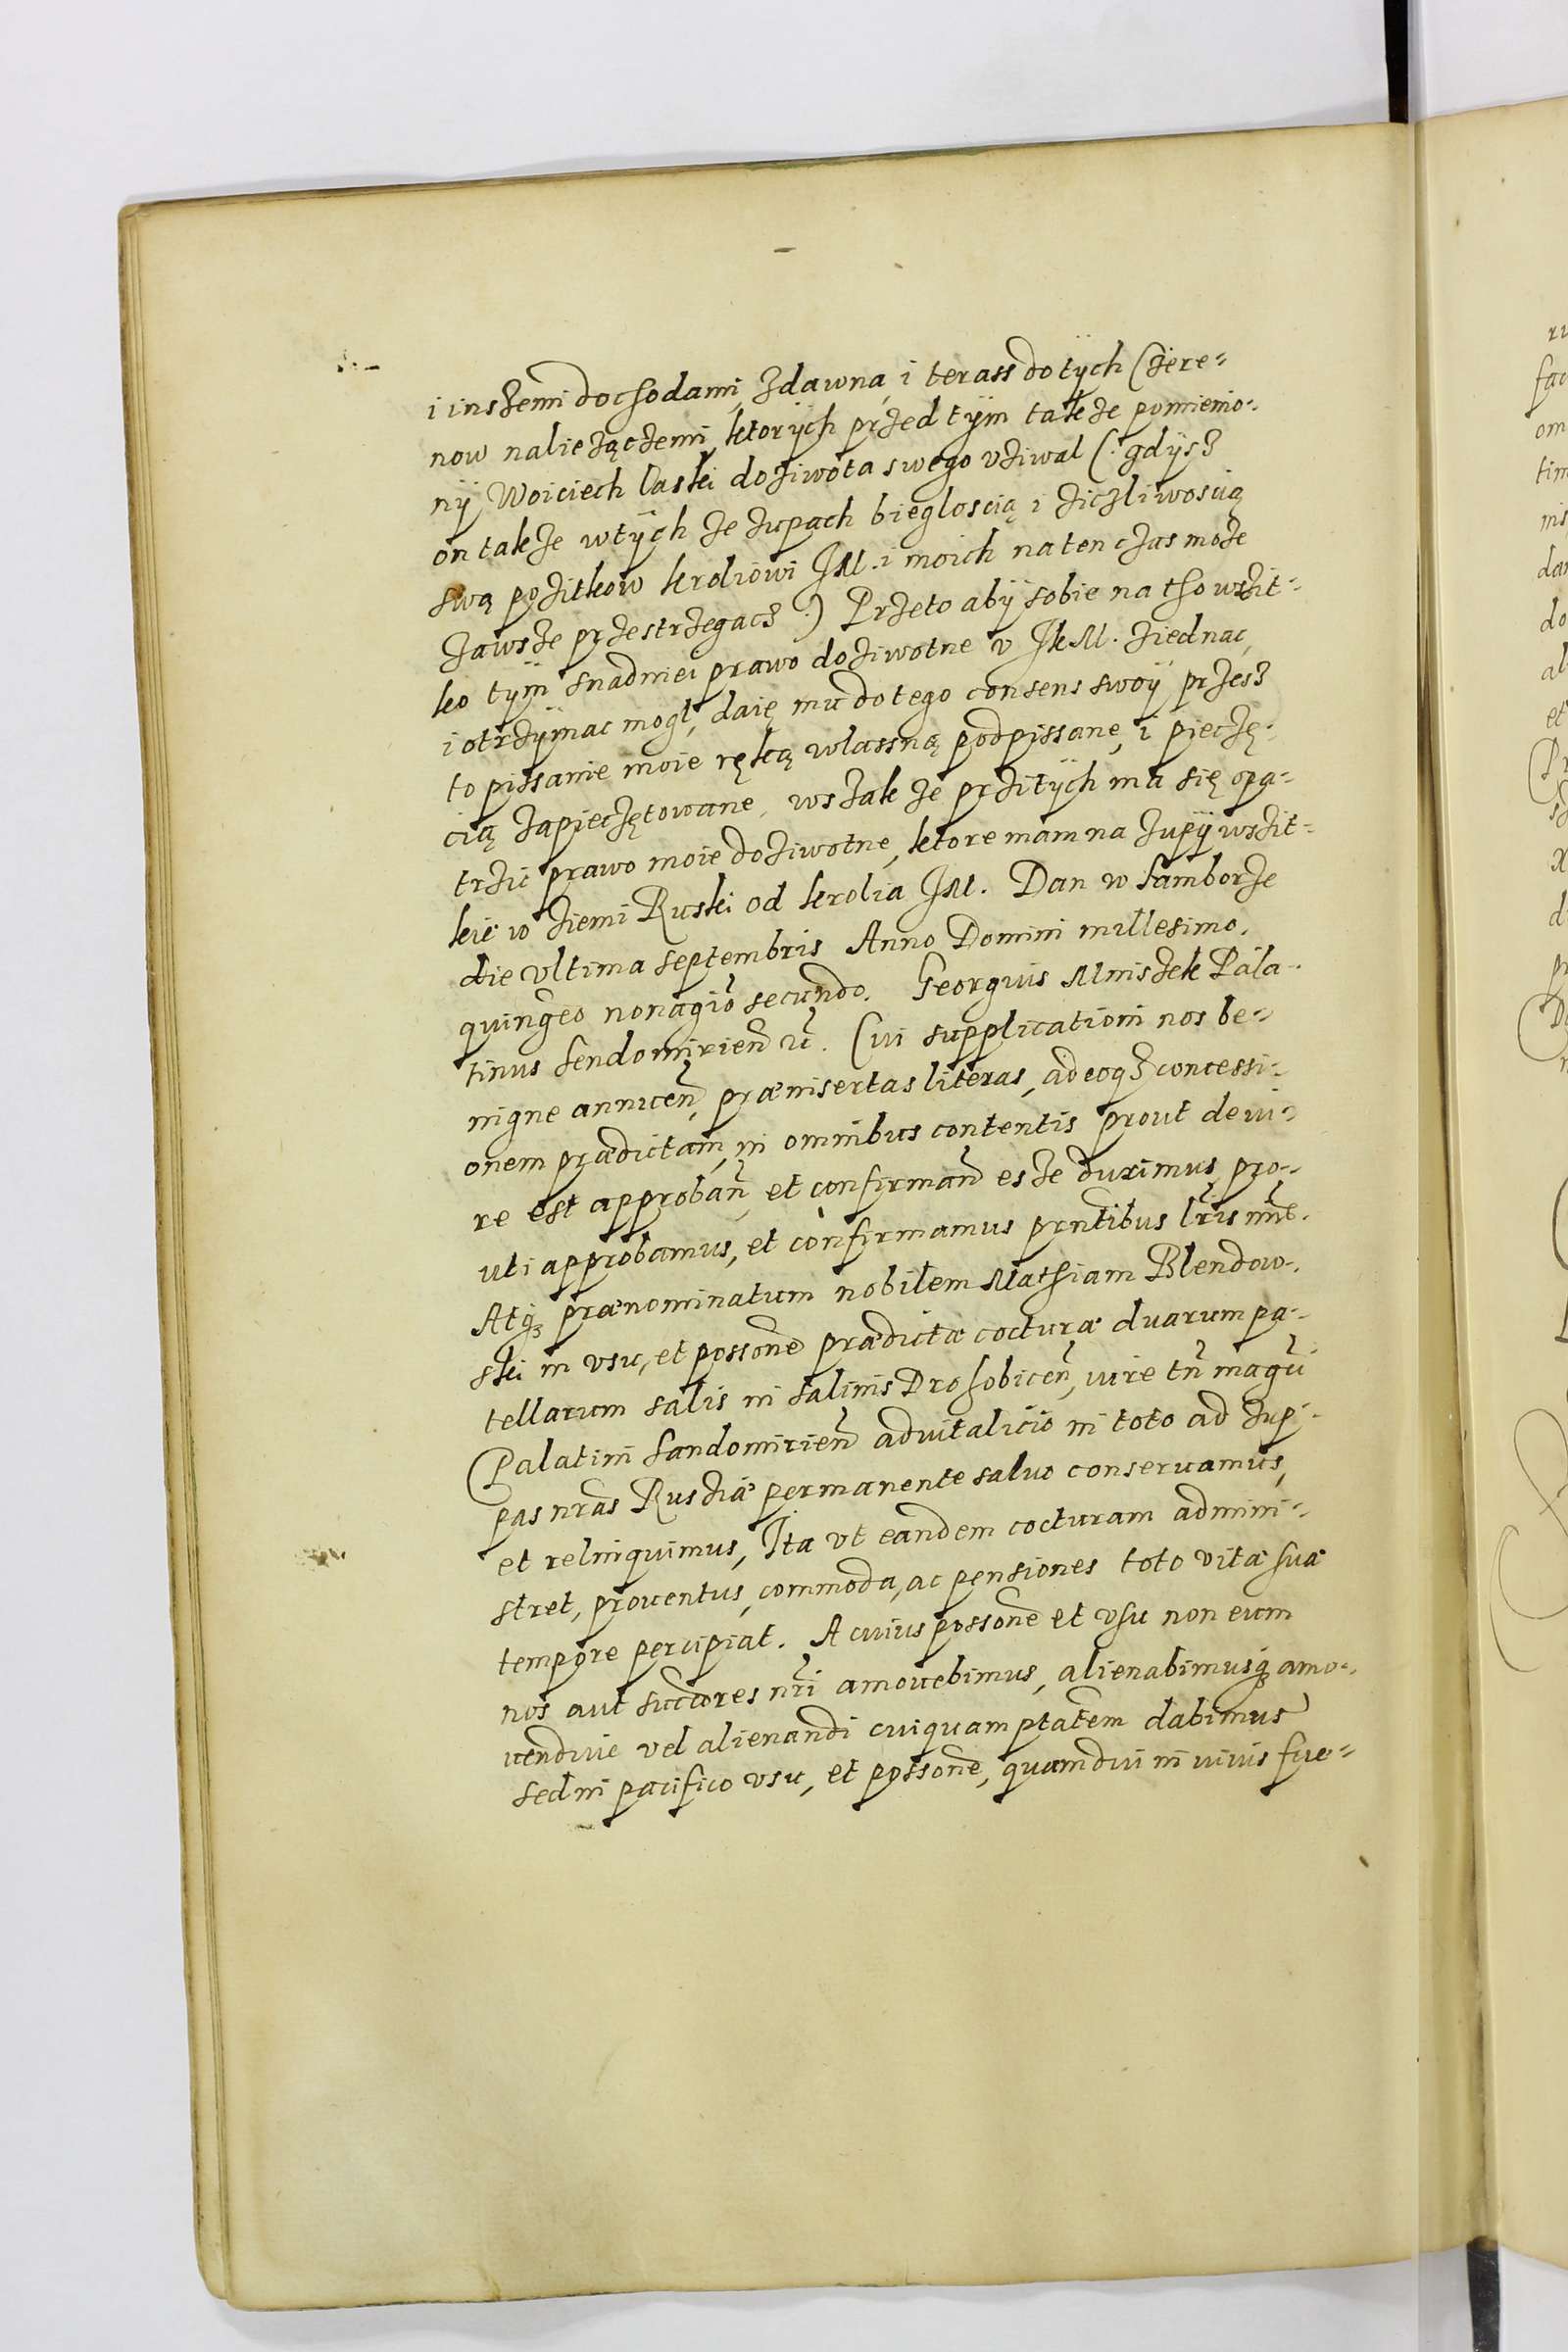 i inszemi dochodami, zdawna, i terass do tÿch Czere=
now nalieżączemi, ktorÿch przed tÿm takze pomienio=
nÿ Woiciech Laski do ziwota swego uziwal (: gdÿsz
on takze w tÿch ze zupach biegloscią i zicżliwoscią
swą pozitkow kroliowi JM. i moich na ten czas moze
zawsze przestrzegacz :) Przeto abÿ sobie na tho wszit=
ko tÿm snadniei prawo doziwotne v JkM. ziednac,
i otrzÿmac mogł, daię mu do tego consens swoÿ przesz
to pissanie moie ręką wlassną podpissane, i pieczę=
cią zapieczętowane, wszakze przi tÿch ma się opa=
trzic prawo moie doziwotne, ktore mam na zupÿ wszit=
kie w ziemi Ruski od krolia JM. Dan w Samborze
die vltima septembris Anno Domini millesimo,
quingeō nonagīo secundo. Georgius Mniszek Pala=
tinus Sendomirieñ ц. Cui supplicationi nos be=
nigne annueñ, præinsertas literas, adeoqз concessi=
onem prædictam, in omnibus contentis prout de iu=
re est approbañ, et confirmañ esze duximus, pro=
uti approbamus, et confirmamus prñtibus lr̃is nr̃is.
Atqз prænominatum nobilem Mathiam Blendow=
ski in vsu, et possoñe prædictæ cocturæ duarum pa=
tellarum salis in salinis Drohobiceñ, iure tñ magci
Palatini Sandomirieñ aduitalicio in toto ad zup=
pas nr̃as Russiæ permanente saluo conseruamus,
et relinquimus, Ita vt eandem cocturam admini=
stret, prouentus, commoda, ac pensiones toto vitæ suæ
tempore percipiat. A cuius possoñe et vsu non eum
nos aut succõres nr̃i amouebimus, alienabimusqз amo=
uendiue vel alienandi cuiquam ptãtem dabimus
sed in pacifico vsu, et possoñe, quamdiu in viuis fue=